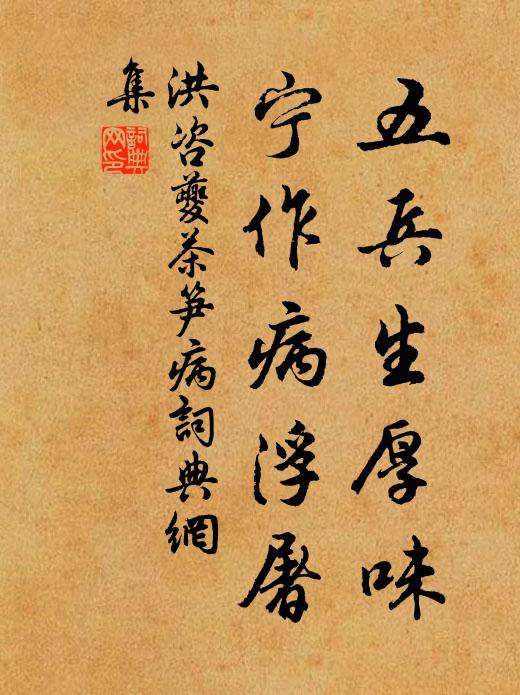 五兵生厚味
宁作病浮屠
洪咨夔茶笋病詞典網
集
詞典網印